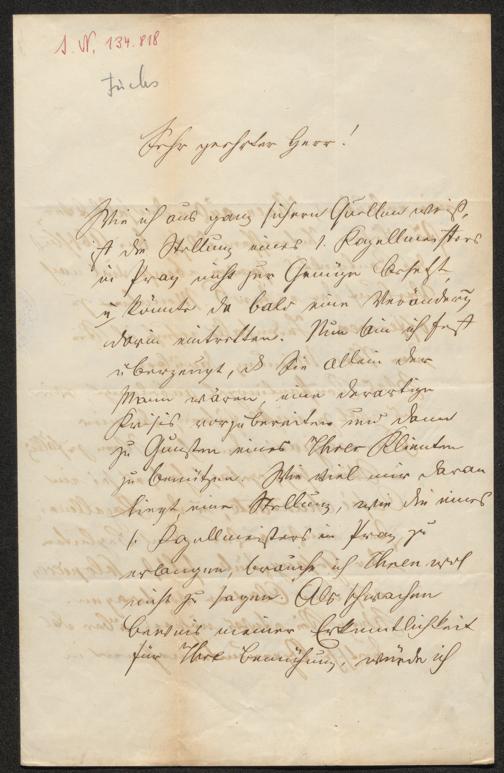 I. N. 134.818
Fuchs
Sehr geehrter Herr!
Wie ich aus ganz sichern Quellen weiß,
ist die Stellung eines 1. Kapellmeisters
in Prag nicht zur Genüge besetzt
u könnte da bald eine Veränderg
darin eintretten. Nun bin ich fest
überzeugt, dß Sie allein der
Mann wären, eine derartige
Krisis vorzubereiten und dann
zu Gunsten eines Ihrer Klienten
zu benützen. Wie viel mir daran
liegt eine Stellung, wie die eines
1. Kapellmeisters in Prag zu
erlangen, brauche ich Ihnen wol
nicht zu sagen. Als schwachen
Beweis meiner Erkentlichkeit
für Ihre Bemühung, würde ich